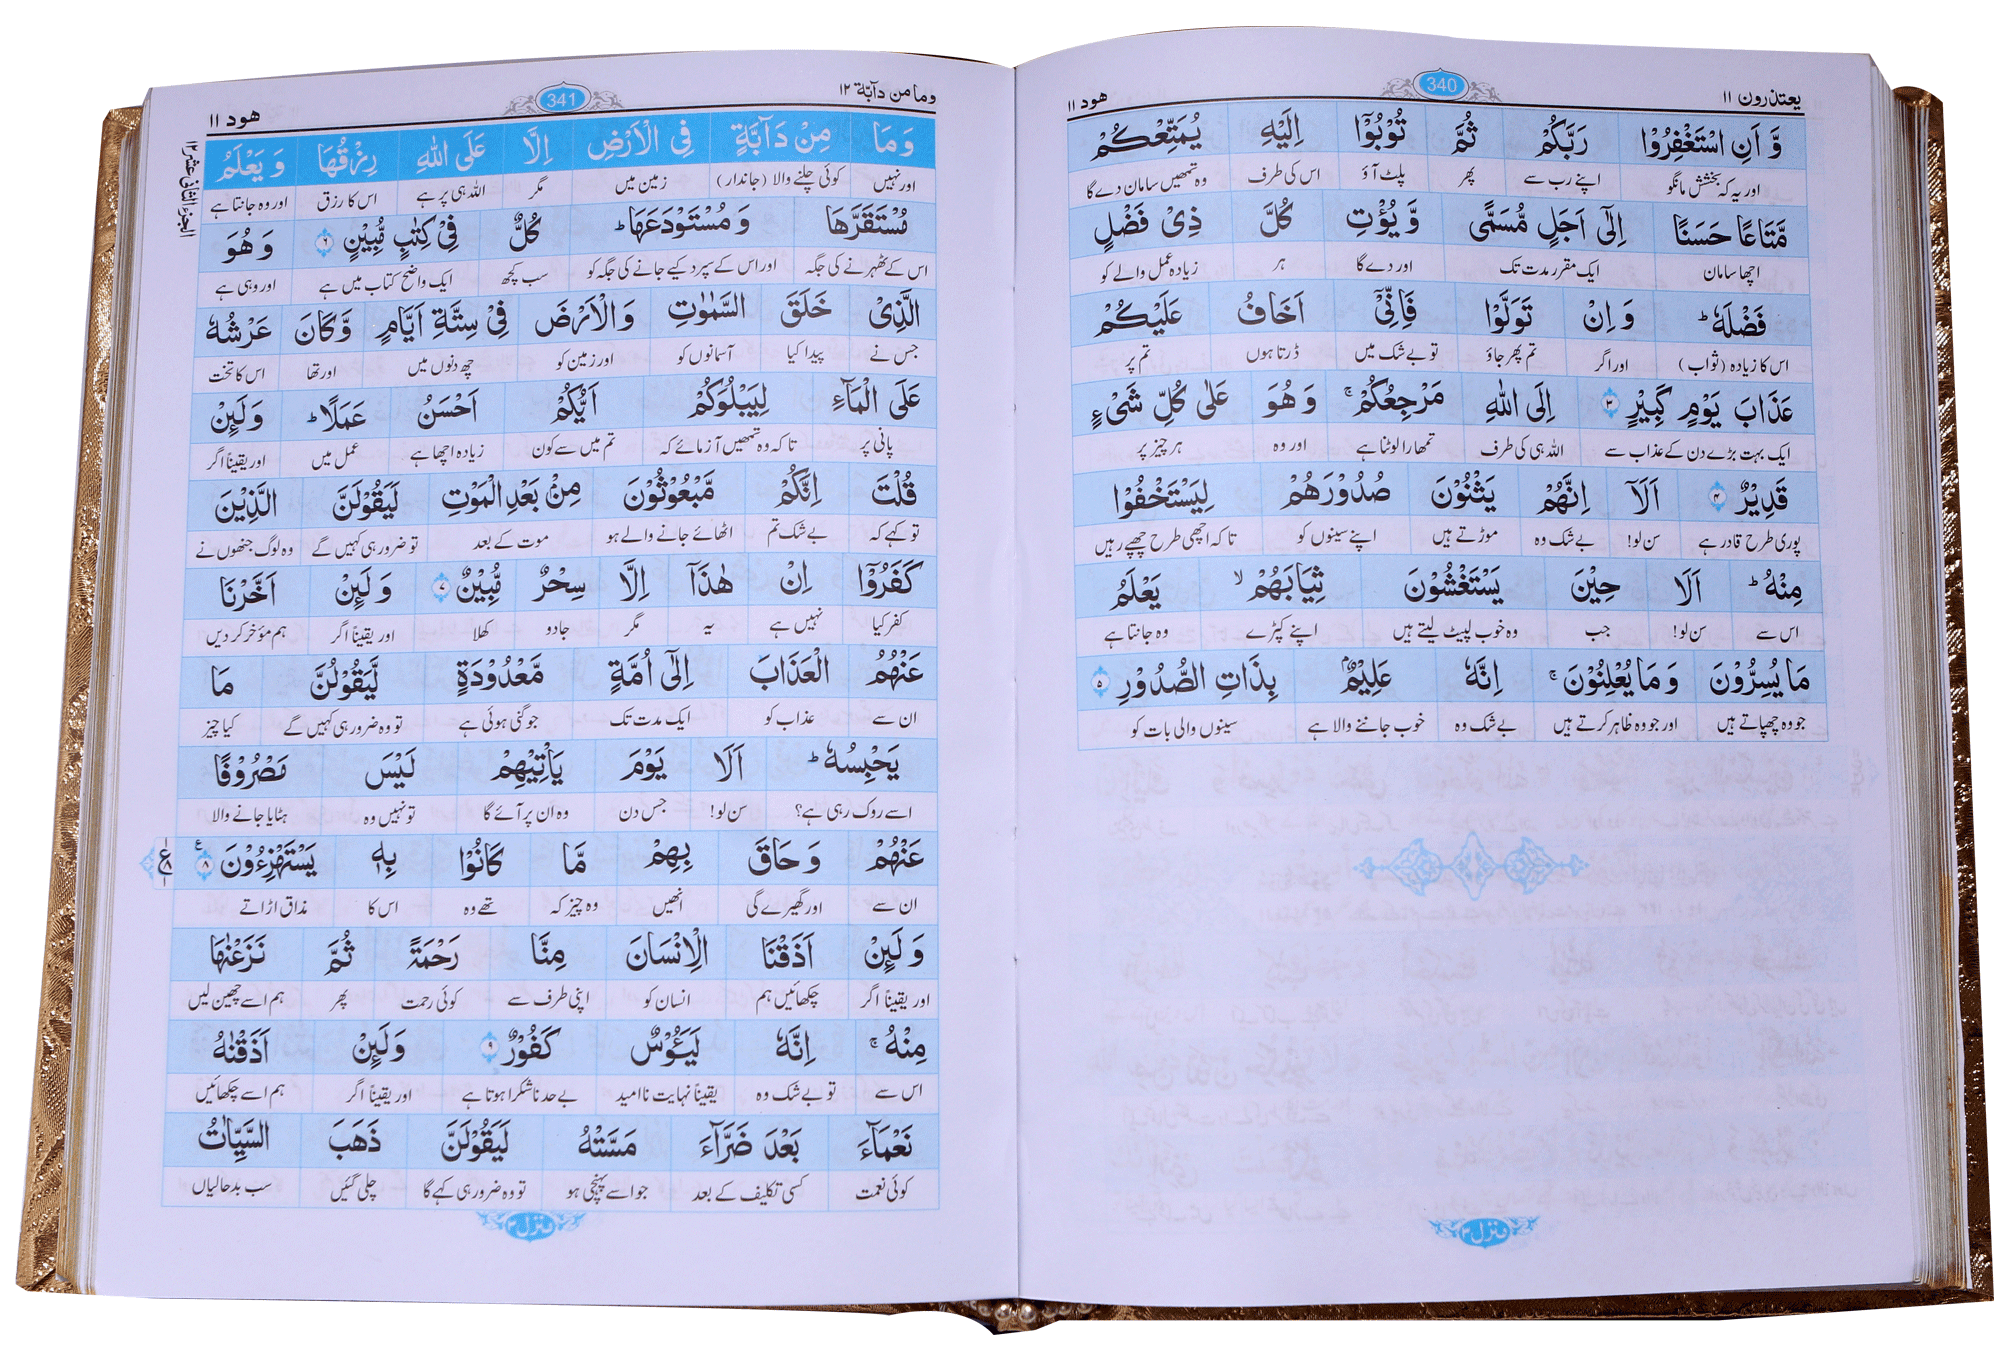 یعتذرون ۱۱
340
ھود ۱۱
وَّ اَنِ اسْتَغْفِرُوْا رَبَّكُمْ ثُمَّ تُوْبُوْۤا اِلَیْهِ یُمَتِّعْكُمْ
اور یہ کہ بخشش مانگو اپنے رب سے پھر پلٹ آؤ اس کی طرف وہ تمھیں سامان دے گا
مَّتَاعًا حَسَنًا اِلٰۤی اَجَلٍ مُّسَمًّی وَّ یُؤْتِ كُلَّ ذِیْ فَضْلٍ
اچھا سامان ایک مقرر مدت تک اور دے گا ہر زیادہ عمل والے کو
فَضْلَهٗ ؕ وَ اِنْ تَوَلَّوْا فَاِنِّیْۤ اَخَافُ عَلَیْكُمْ
اس کا زیادہ (ثواب) اور اگر تم پھر جاؤ تو بے شک میں ڈرتا ہوں تم پر
عَذَابَ یَوْمٍ كَبِیْرٍ ۳ اِلَی اللّٰهِ مَرْجِعُكُمْ ۚ وَ هُوَ عَلٰی كُلِّ شَیْءٍ
ایک بہت بڑے دن کے عذاب سے اللہ ہی کی طرف تمھارا لوٹنا ہے اور وہ ہر چیز پر
قَدِیْرٌ ۴ اَلَاۤ اِنَّهُمْ یَثْنُوْنَ صُدُوْرَهُمْ لِیَسْتَخْفُوْا
پوری طرح قادر ہے سن لو! بے شک وہ موڑتے ہیں اپنے سینوں کو تاکہ اچھی طرح چھپے رہیں
مِنْهُ ؕ اَلَا حِیْنَ یَسْتَغْشُوْنَ ثِیَابَهُمْ ۙ یَعْلَمُ
اس سے سن لو! جب وہ خوب لپیٹ لیتے ہیں اپنے کپڑے وہ جانتا ہے
مَا یُسِرُّوْنَ وَ مَا یُعْلِنُوْنَ ۚ اِنَّهٗ عَلِیْمٌۢ بِذَاتِ الصُّدُوْرِ ۵
جو وہ چھپاتے ہیں اور جو وہ ظاہر کرتے ہیں بے شک وہ خوب جاننے والا ہے سینوں والی بات کو
منزل ۳
وما من دآبّة ۱۲
341
ھود ۱۱
الجزء الثانی عشر ۱۲
وَ مَا مِنْ دَآبَّةٍ فِی الْاَرْضِ اِلَّا عَلَی اللّٰهِ رِزْقُهَا وَ یَعْلَمُ
اور نہیں کوئی چلنے والا (جاندار) زمین میں مگر اللہ ہی پر ہے اس کا رزق اور وہ جانتا ہے
مُسْتَقَرَّهَا وَ مُسْتَوْدَعَهَا ؕ كُلٌّ فِیْ كِتٰبٍ مُّبِیْنٍ ۶ وَ هُوَ
اس کے ٹھہرنے کی جگہ اور اس کے سپرد کیے جانے کی جگہ کو سب کچھ ایک واضح کتاب میں ہے اور وہی ہے
الَّذِیْ خَلَقَ السَّمٰوٰتِ وَ الْاَرْضَ فِیْ سِتَّةِ اَیَّامٍ وَّ كَانَ عَرْشُهٗ
جس نے پیدا کیا آسمانوں کو اور زمین کو چھ دنوں میں اور تھا اس کا تخت
عَلَی الْمَآءِ لِیَبْلُوَكُمْ اَیُّكُمْ اَحْسَنُ عَمَلًا ؕ وَ لَىِٕنْ
پانی پر تاکہ وہ تمھیں آزمائے کہ تم میں سے کون زیادہ اچھا ہے عمل میں اور یقیناً اگر
قُلْتَ اِنَّكُمْ مَّبْعُوْثُوْنَ مِنْۢ بَعْدِ الْمَوْتِ لَیَقُوْلَنَّ الَّذِیْنَ
تو کہے کہ بے شک تم اٹھائے جانے والے ہو موت کے بعد تو ضرور ہی کہیں گے وہ لوگ جنھوں نے
كَفَرُوْۤا اِنْ هٰذَاۤ اِلَّا سِحْرٌ مُّبِیْنٌ ۷ وَ لَىِٕنْ اَخَّرْنَا
کفر کیا نہیں ہے یہ مگر جادو کھلا اور یقیناً اگر ہم مؤخر کر دیں
عَنْهُمُ الْعَذَابَ اِلٰۤی اُمَّةٍ مَّعْدُوْدَةٍ لَّیَقُوْلُنَّ مَا
ان سے عذاب کو ایک مدت تک جو گنی ہوئی ہے تو وہ ضرور ہی کہیں گے کیا چیز
یَحْبِسُهٗ ؕ اَلَا یَوْمَ یَاْتِیْهِمْ لَیْسَ مَصْرُوْفًا
اسے روک رہی ہے؟ سن لو! جس دن وہ ان پر آئے گا تو نہیں وہ ہٹایا جانے والا
عَنْهُمْ وَ حَاقَ بِهِمْ مَّا كَانُوْا بِهٖ یَسْتَهْزِءُوْنَ ۸ ع
ان سے اور گھیرے گی انھیں وہ چیز کہ تھے وہ اس کا مذاق اڑاتے
وَ لَىِٕنْ اَذَقْنَا الْاِنْسَانَ مِنَّا رَحْمَةً ثُمَّ نَزَعْنٰهَا
اور یقیناً اگر چکھائیں ہم انسان کو اپنی طرف سے کوئی رحمت پھر ہم اسے چھین لیں
مِنْهُ ۚ اِنَّهٗ لَیَـُٔوْسٌ كَفُوْرٌ ۹ وَ لَىِٕنْ اَذَقْنٰهُ
اس سے تو بے شک وہ یقیناً نہایت ناامید بے حد ناشکرا ہوتا ہے اور یقیناً اگر ہم اسے چکھائیں
نَعْمَآءَ بَعْدَ ضَرَّآءَ مَسَّتْهُ لَیَقُوْلَنَّ ذَهَبَ السَّیِّاٰتُ
کوئی نعمت کسی تکلیف کے بعد جو اسے پہنچی ہو تو وہ ضرور ہی کہے گا چلی گئیں سب بدحالیاں
منزل ۳